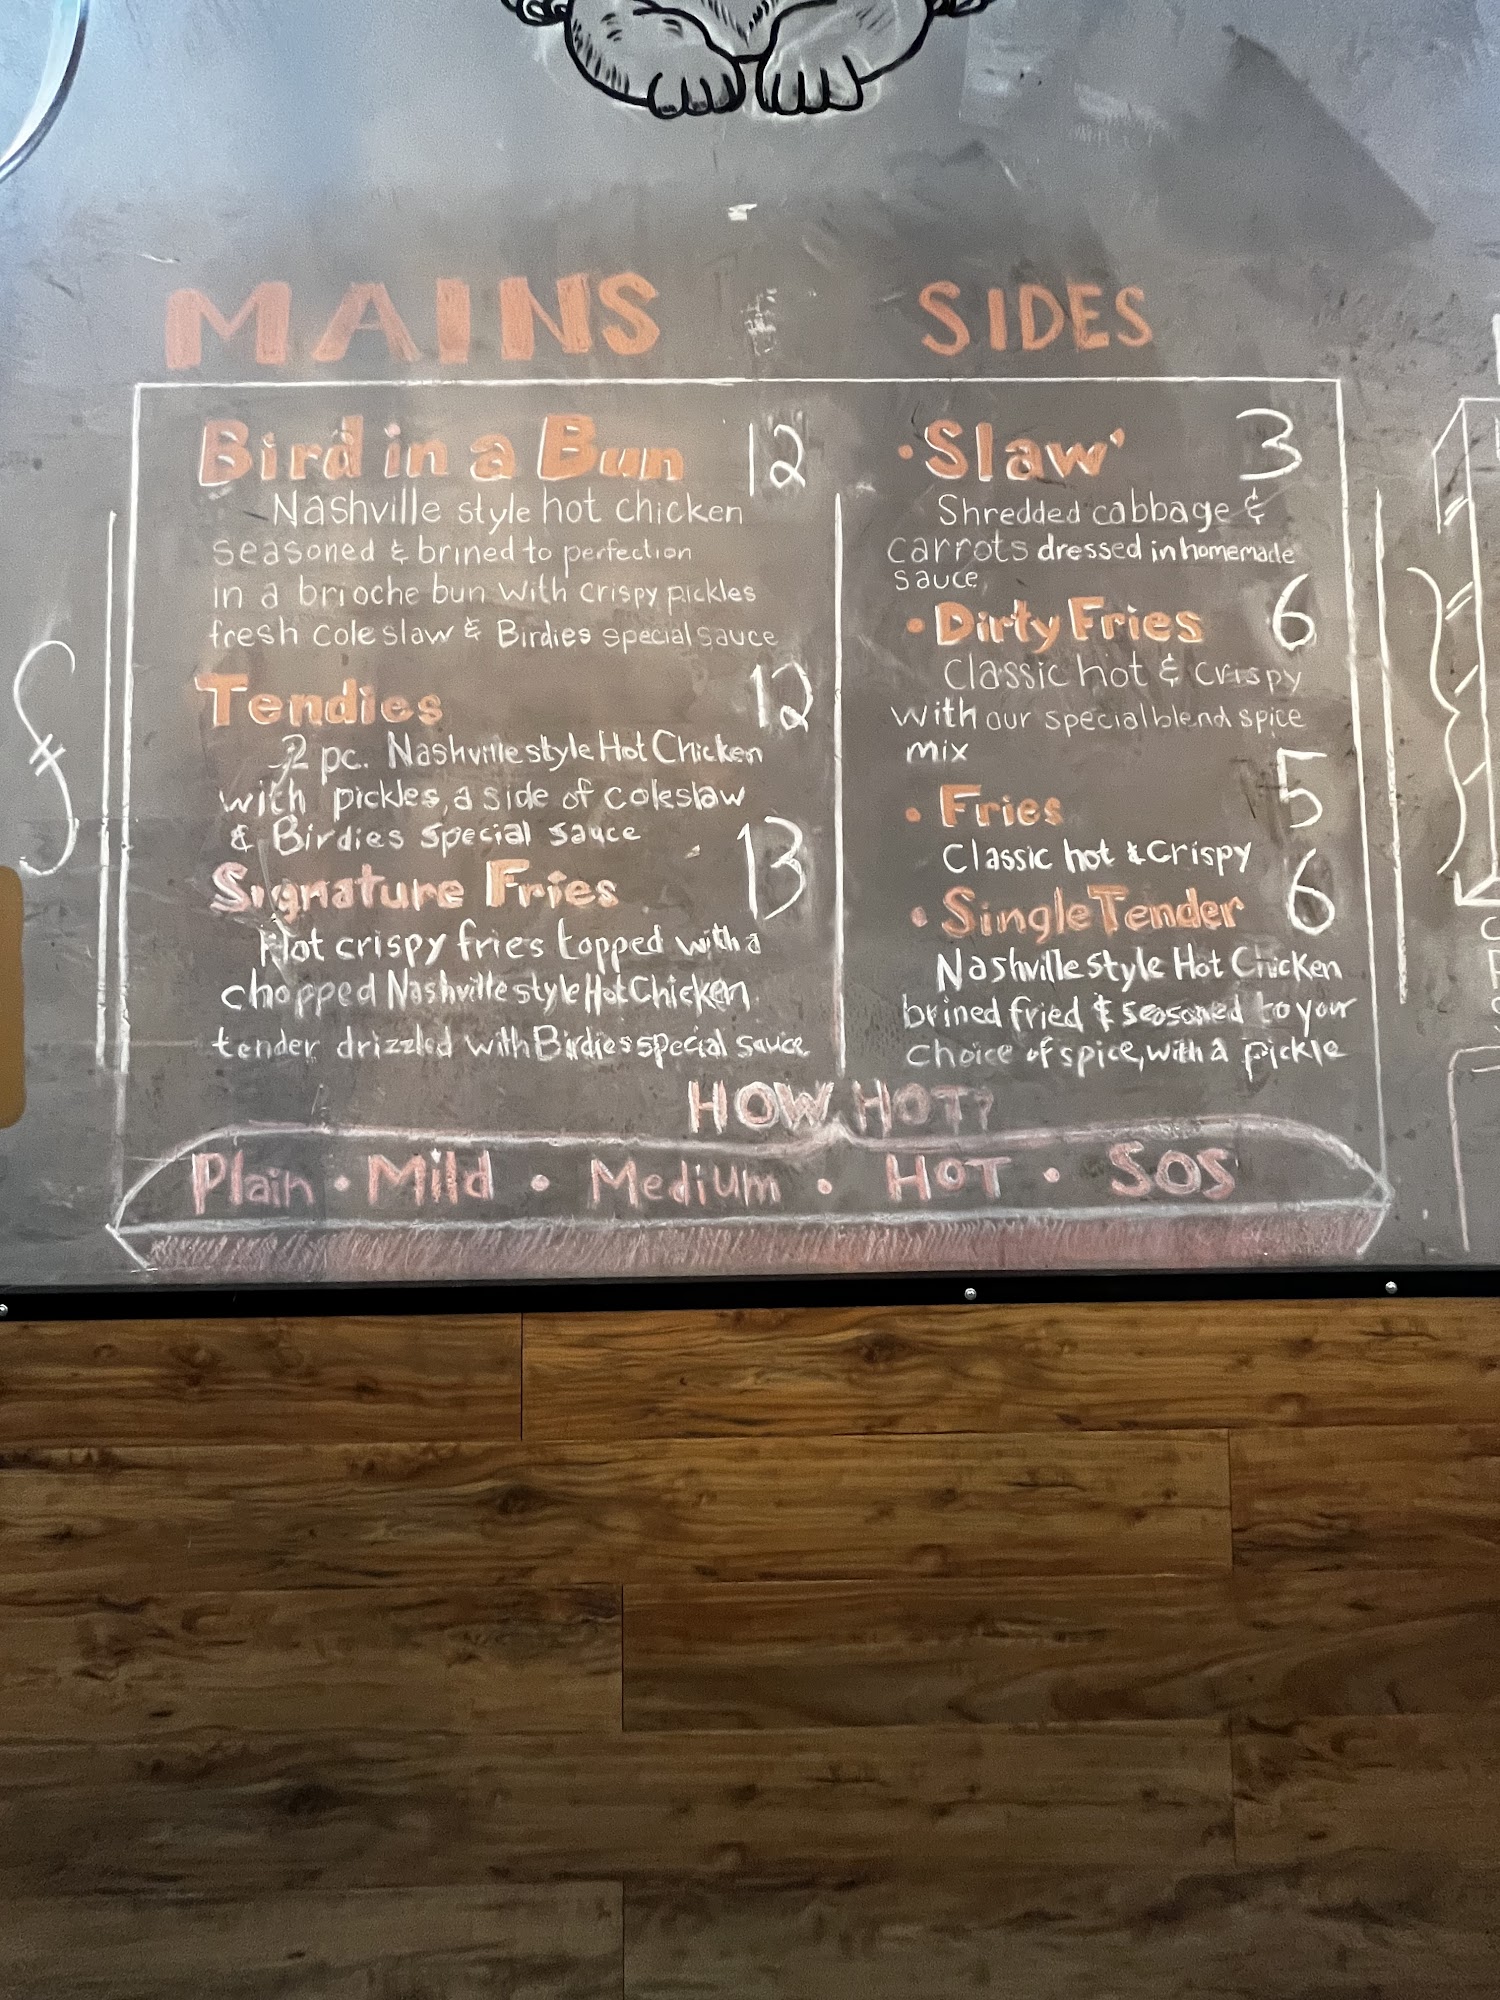 MAINS
Bird in a Bun 12
Nashville style hot chicken
seasoned & brined to perfection
in a brioche bun with crispy pickles
fresh coleslaw & Birdies special sauce
Tendies 12
2 pc. Nashville style Hot Chicken
with pickles, a side of coleslaw
& Birdies special sauce
Signature Fries 13
Hot crispy fries topped with a
chopped Nashville style Hot Chicken
tender drizzled with Birdies special sauce
SIDES
• Slaw' 3
Shredded cabbage &
carrots dressed in homemade
sauce
• Dirty Fries 6
Classic hot & crispy
with our special blend spice
mix
• Fries 5
Classic hot & Crispy
• Single Tender 6
Nashville style Hot Chicken
brined fried & seasoned to your
choice of spice, with a pickle
HOW HOT?
Plain • Mild • Medium • HOT • SOS